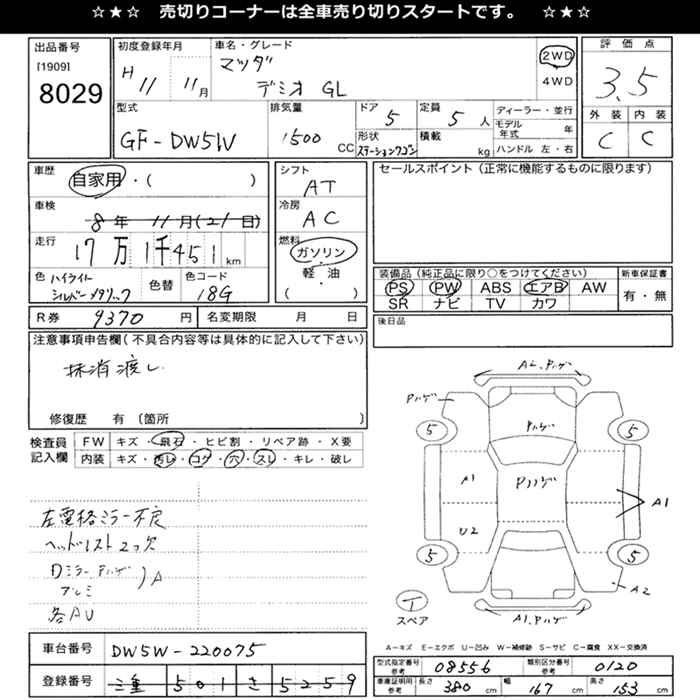 ☆★☆ 売切りコーナーは全車売り切りスタートです。 ☆★☆
出品番号
[1909]
8029
初度登録年月
H 11 11月
車名・グレード
マツダ
デミオ GL
2WD
4WD
評価点
3.5
外装 内装
C C
型式
GF-DW5W
排気量
1500 CC
ドア 5
形状 ステーションワゴン
定員 5 人
積載 kg
ディーラー・並行
モデル年式 年
ハンドル 左・右
車歴 自家用・( )
車検 8年 11月(21日)
走行 17万1千451 km
色 ハイライトシルバーメタリック
色替
色コード 18G
シフト AT
冷房 AC
燃料 ガソリン
軽・油
( )
セールスポイント(正常に機能するものに限ります)
装備品(純正品に限り○をつけてください)
PS PW ABS エアB AW
SR ナビ TV カワ
新車保証書
有・無
R券 9370 円
名変期限 月 日
後日品
注意事項申告欄(不具合内容等は具体的に記入して下さい)
抹消渡し
修復歴 有 〔箇所 〕
検査員記入欄
FW キズ・飛石・ヒビ割・リペア跡・X要
内装 キズ・汚レ・コゲ・穴・スレ・キレ・破レ
左電格ミラー不良
ヘッドレスト2ケ欠
Dミラー Pハゲ
アルミ
)A
各AU
A2.Pハゲ
Pハゲ
Pハゲ
Pハゲ
5
5
A1
U2
A1
5
5
A2
A1.Pハゲ
T
スペア
A－キズ E－エクボ U－凹み W－補修跡 S－サビ C－腐食 XX－交換済
車台番号 DW5W-220075
登録番号 三重 501 さ 5259
型式指定番号 参考 08556
類別区分番号 参考 0120
車庫証明用 参考 長さ 380 cm 幅 167 cm 高さ 153 cm